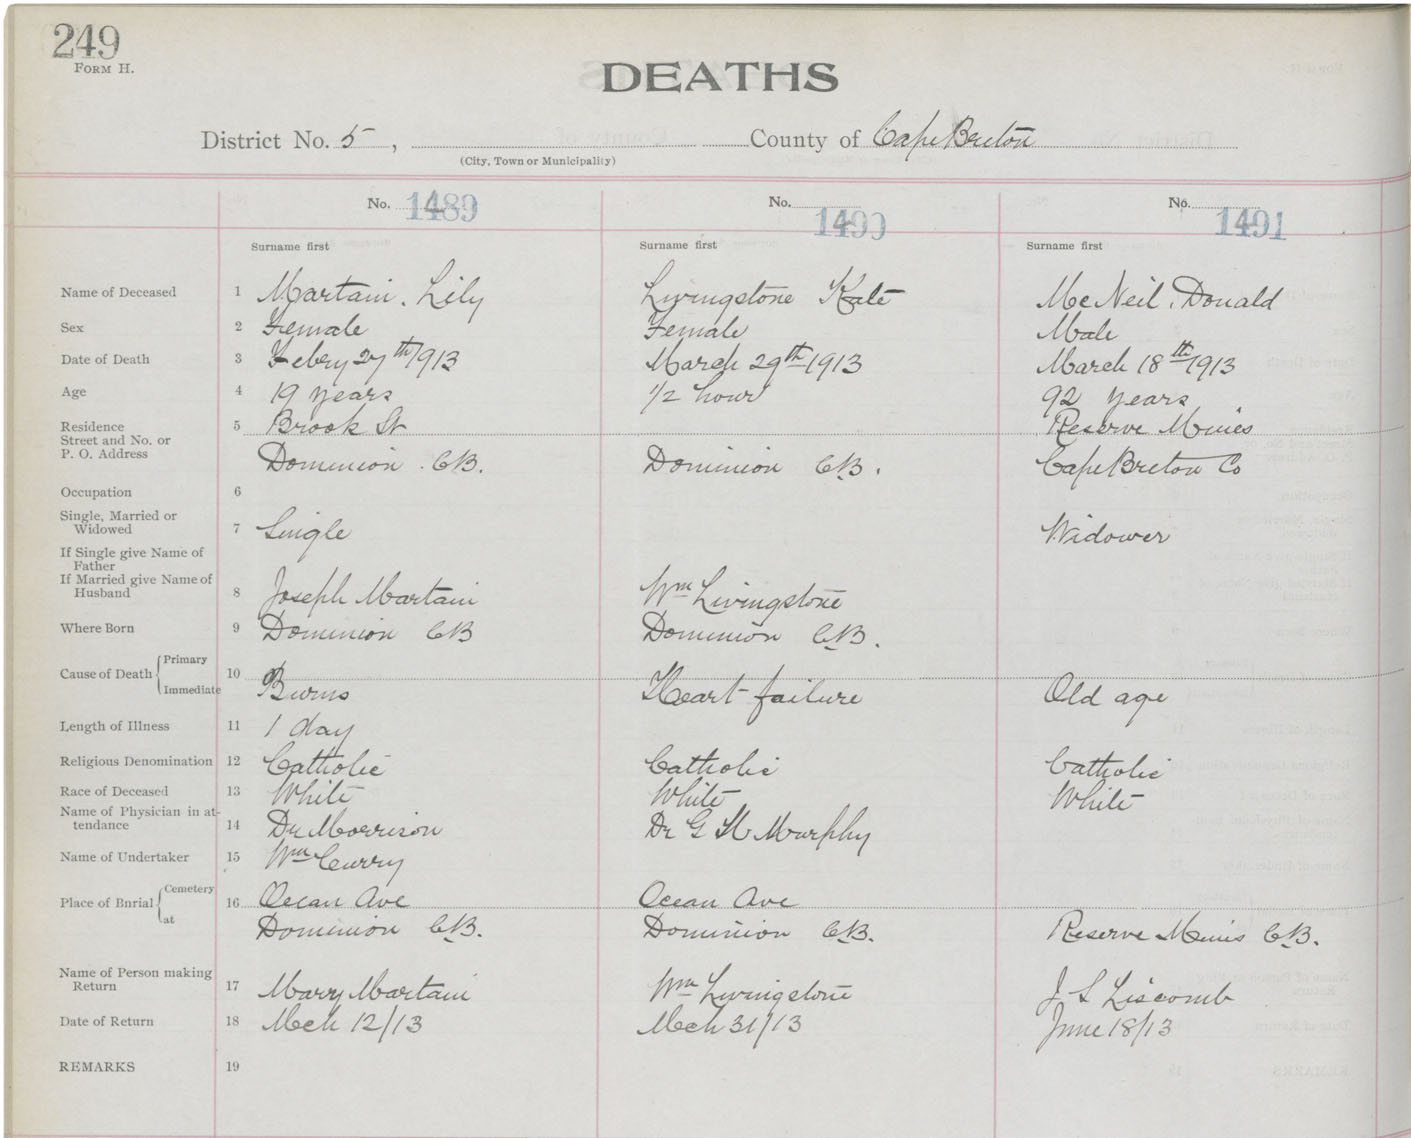 249
FORM H.
DEATHS
District No. 5, County of Cape Breton
(City, Town or Municipality)
No. 1489 No. 1490 No. 1491
Surname first Surname first Surname first
Name of Deceased 1 Martain. Lily Livingstone Kate McNeil, Donald
Sex 2 Female Female Male
Date of Death 3 Febry 27th 1913 March 29th 1913 March 18th 1913
Age 4 19 years 1/2 hour 92 years
Residence 5 Brook St Reserve Mines
Street and No. or
P. O. Address Dominion. CB. Dominion CB. Cape Breton Co
Occupation 6
Single, Married or
Widowed 7 Single Widower
If Single give Name of
Father
If Married give Name of
Husband 8 Joseph Martain Wm Livingstone
Where Born 9 Dominion CB Dominion CB.
Primary
Cause of Death 10
Immediate Burns Heart failure Old age
Length of Illness 11 1 day
Religious Denomination 12 Catholic Catholic Catholic
Race of Deceased 13 White White White
Name of Physician in at-
tendance 14 Dr Morrison Dr G H Murphy
Name of Undertaker 15 Wm Curry
Cemetery
Place of Bnrial 16 Ocean Ave Ocean Ave
at Dominion CB. Dominion CB. Reserve Mines CB.
Name of Person making
Return 17 Mary Martain Wm Livingstone J S Liscomb
Date of Return 18 Mch 12/13 Mch 31/13 June 18/13
REMARKS 19